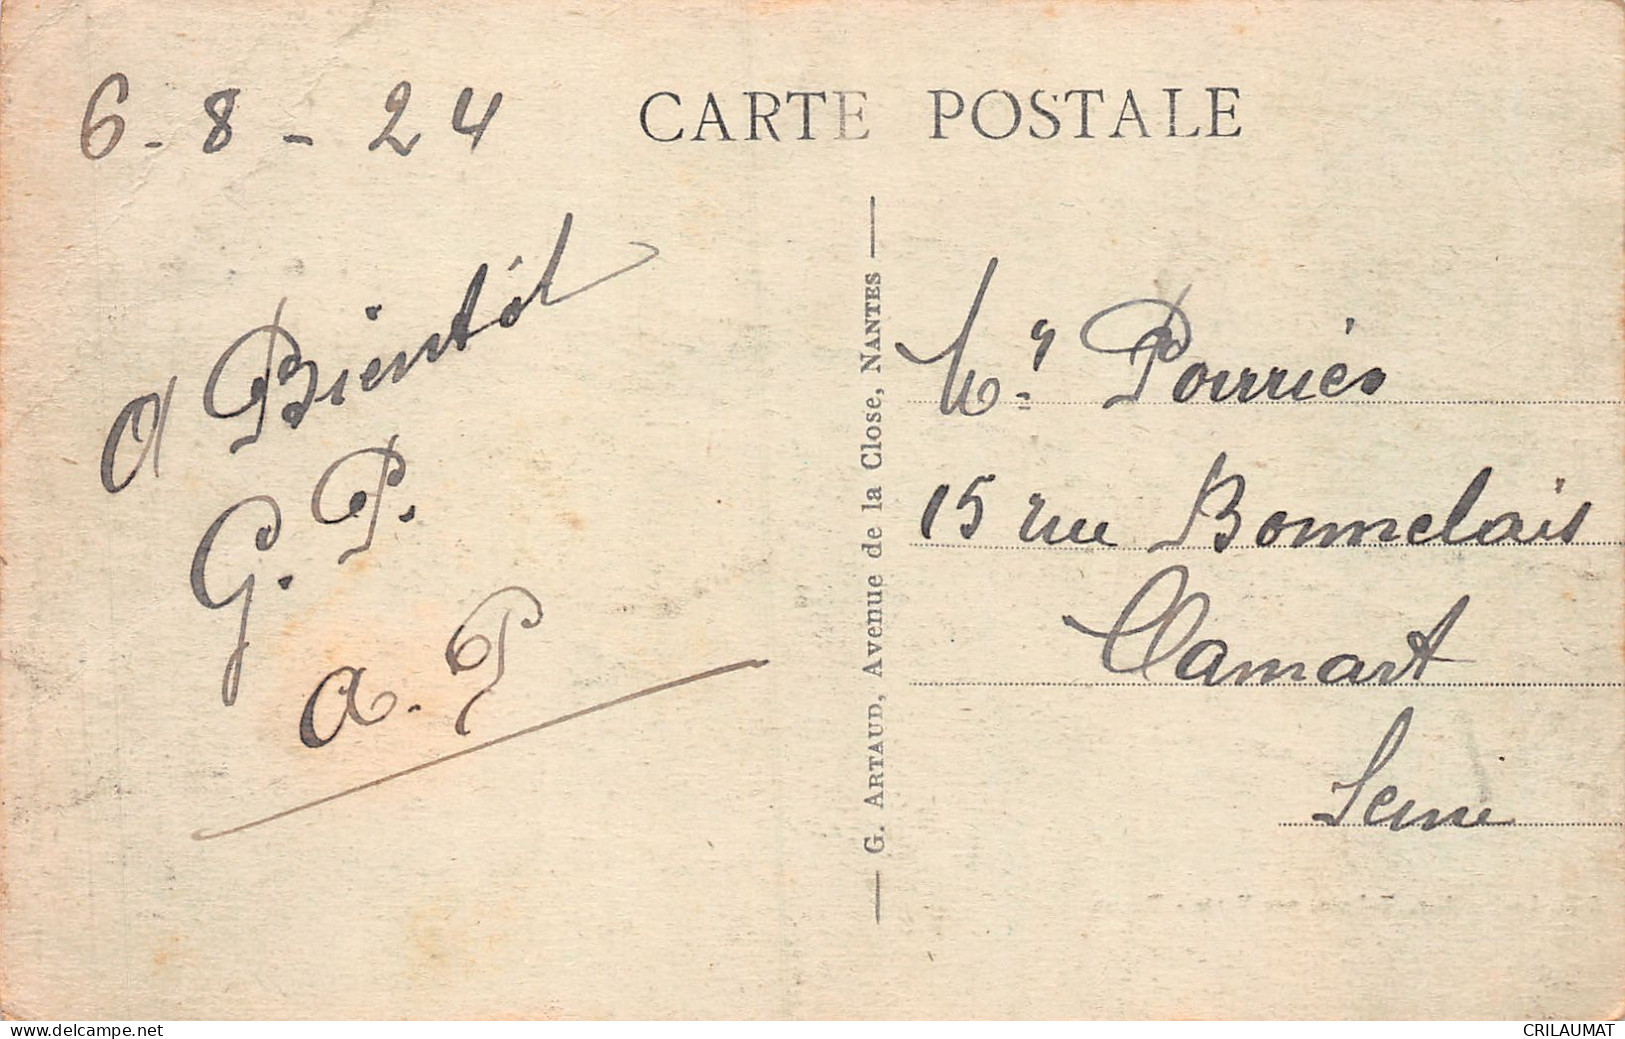 CARTE POSTALE
6-8-24
A Bientôt
G. P.
a. P
G. ARTAUD, Avenue de la Close, NANTES
Mr. Pourriés
15 rue Bonnelais
Clamart
Seine
www.delcampe.net
CRILAUMAT